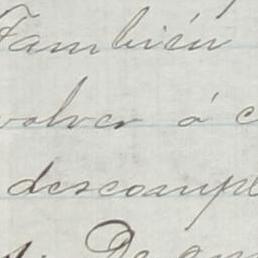 También
volver á c
descompl
. De qu